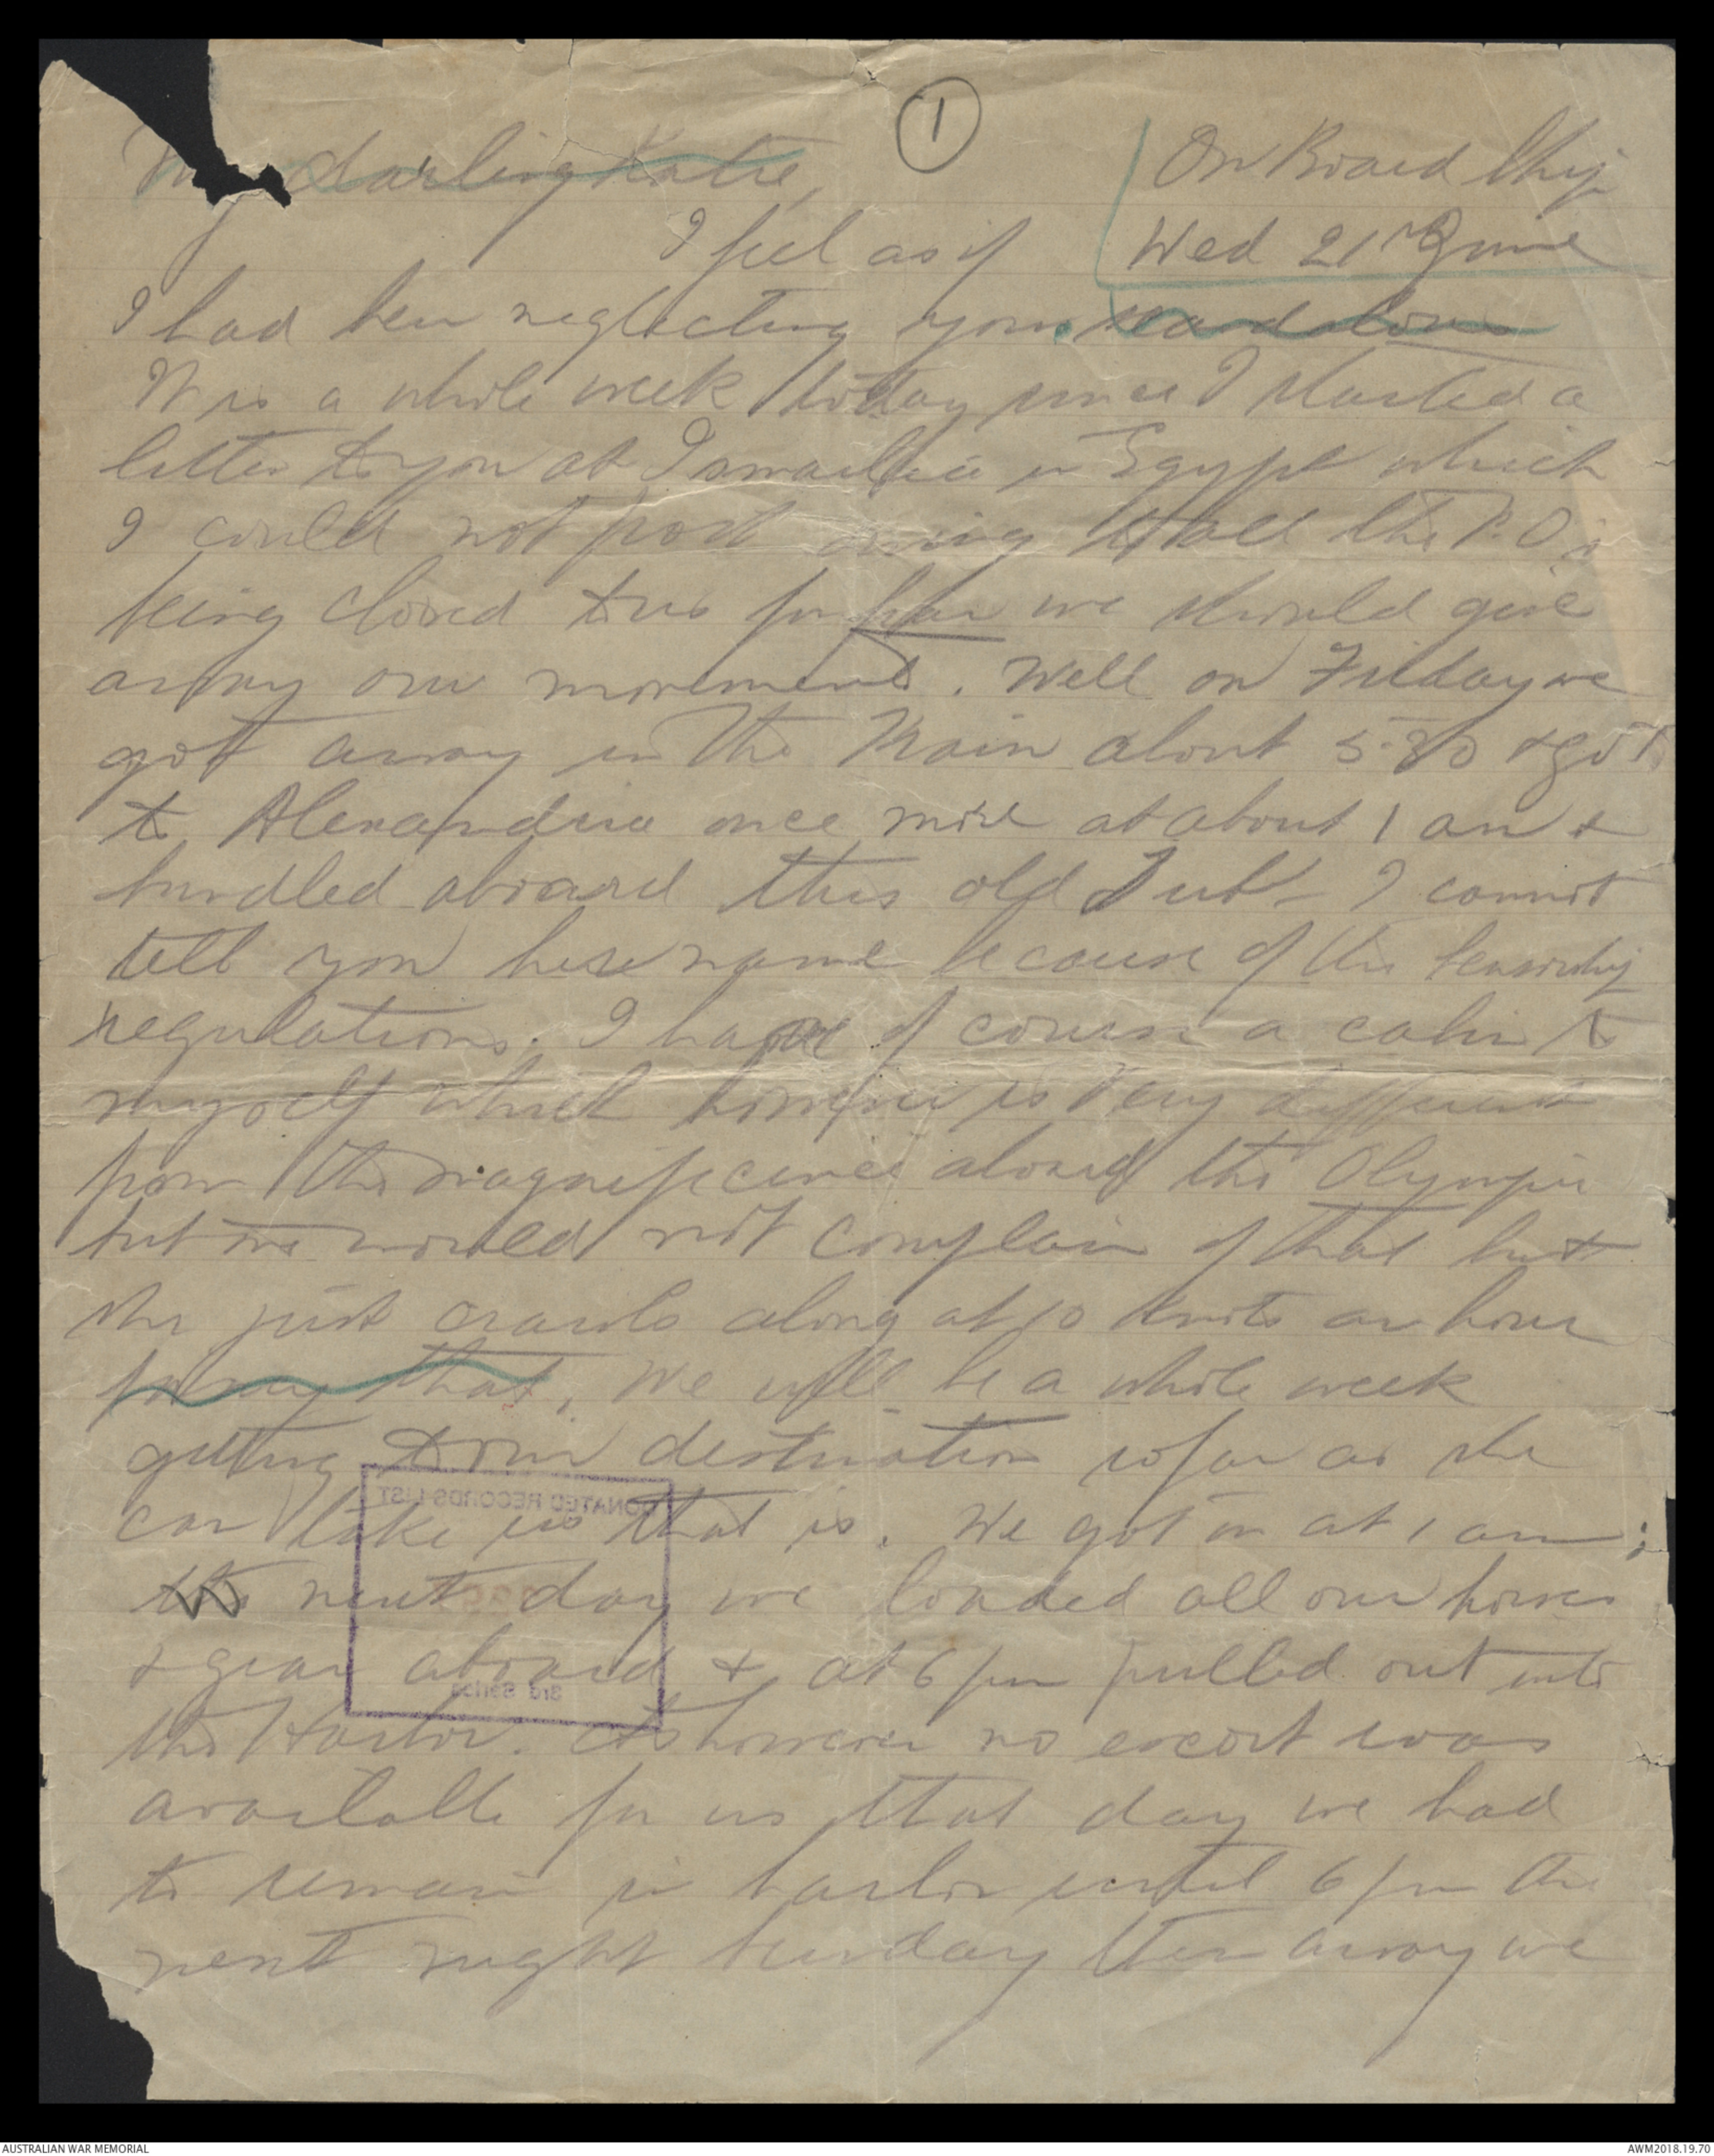 1
My darling Katie,
On Board Ship
Wed 21st June
I feel as if
I had been neglecting you
It is a whole week today since I started a
letter to you at Ismailia in Egypt which
I could not post owing to all the P.O.s
being closed to us for fear we should give
away our movements. Well on Friday we
got away in the train about 5.30 & got
to Alexandria once more at about 1 am &
bundled aboard this old Tub - I cannot
tell you her name because of the Censorship
regulations. I have of course a cabin to
myself which however is very different
from the magnificence aboard the Olympic
but we would not complain of that but
she just crawls along at 10 knots an hour
that. We will be a whole week
getting to our destination so far as she
can take us that is. We got in at 1 am;
the next day we loaded all our horses
& gear aboard & at 6 pm pulled out into
the Harbor. As however no escort was
available for us that day we had
to remain in harbor until 6 pm the
next night Sunday then away we
DONATED RECORDS LIST
3rd Series
AUSTRALIAN WAR MEMORIAL
AWM2018.19.70